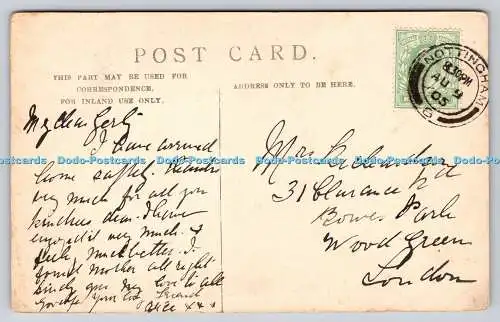 POST CARD.
THIS PART MAY BE USED FOR
CORRESPONDENCE.
FOR INLAND USE ONLY.
ADDRESS ONLY TO BE HERE.
NOTTINGHAM
8.30PM
AU 9
05
My dear Gerty
I have arrived
home safely. Thanks
very much for all you
kindness dear. I have
enjoyed it very much. &
feel much better. I
found mother all right
kindly give my love to all
your Friend
Alice x x x
Mrs
31 Clarence Rd
Bowes Park
Wood Green
London
Dodo-Postcards Dodo-Postcards Dodo-Postcards Dodo-Postcards Dodo-Postcards